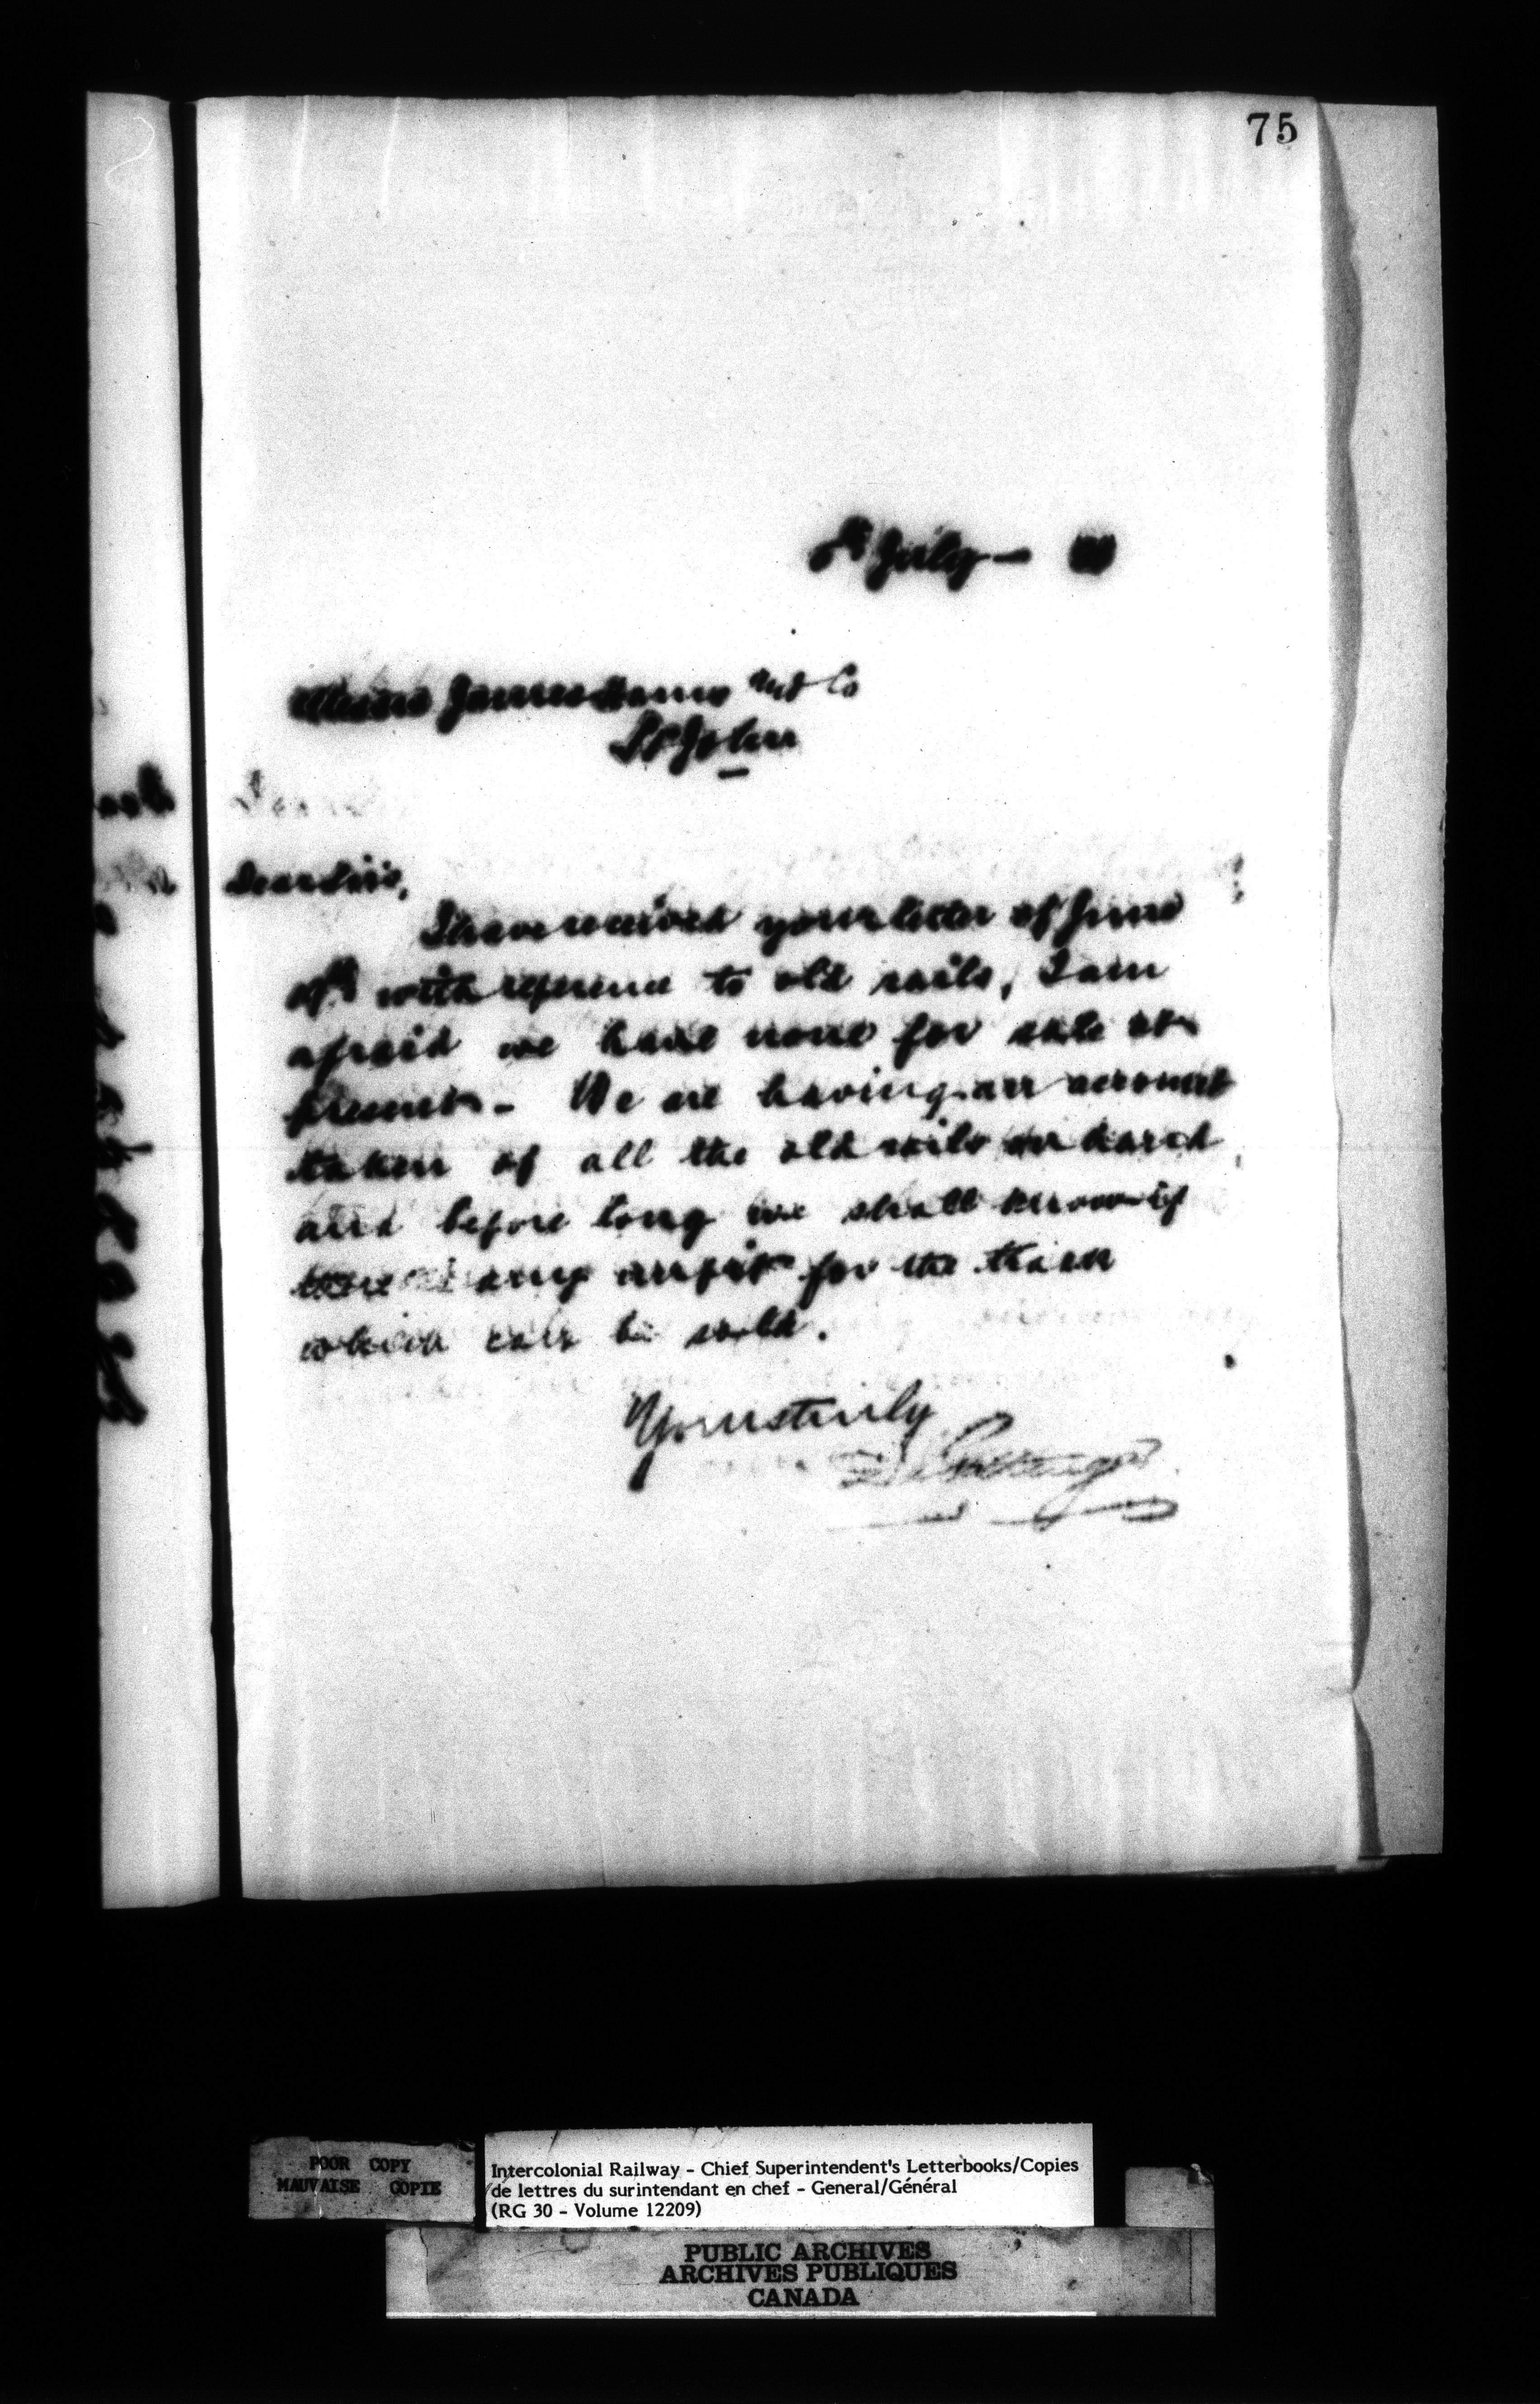 75
July —
Messrs James Harris and Co
St John
Dear Sirs,
I have received your letter of June
with reference to old rails, I am
afraid we have none for sale at
present - We are having an account
taken of all the old rails on hand,
and before long we shall know if
there any unfit for the track
which can be sold.
Yours truly
D Pottinger
POOR COPY
MAUVAISE COPIE
Intercolonial Railway - Chief Superintendent's Letterbooks/Copies
de lettres du surintendant en chef - General/Général
(RG 30 - Volume 12209)
PUBLIC ARCHIVES
ARCHIVES PUBLIQUES
CANADA